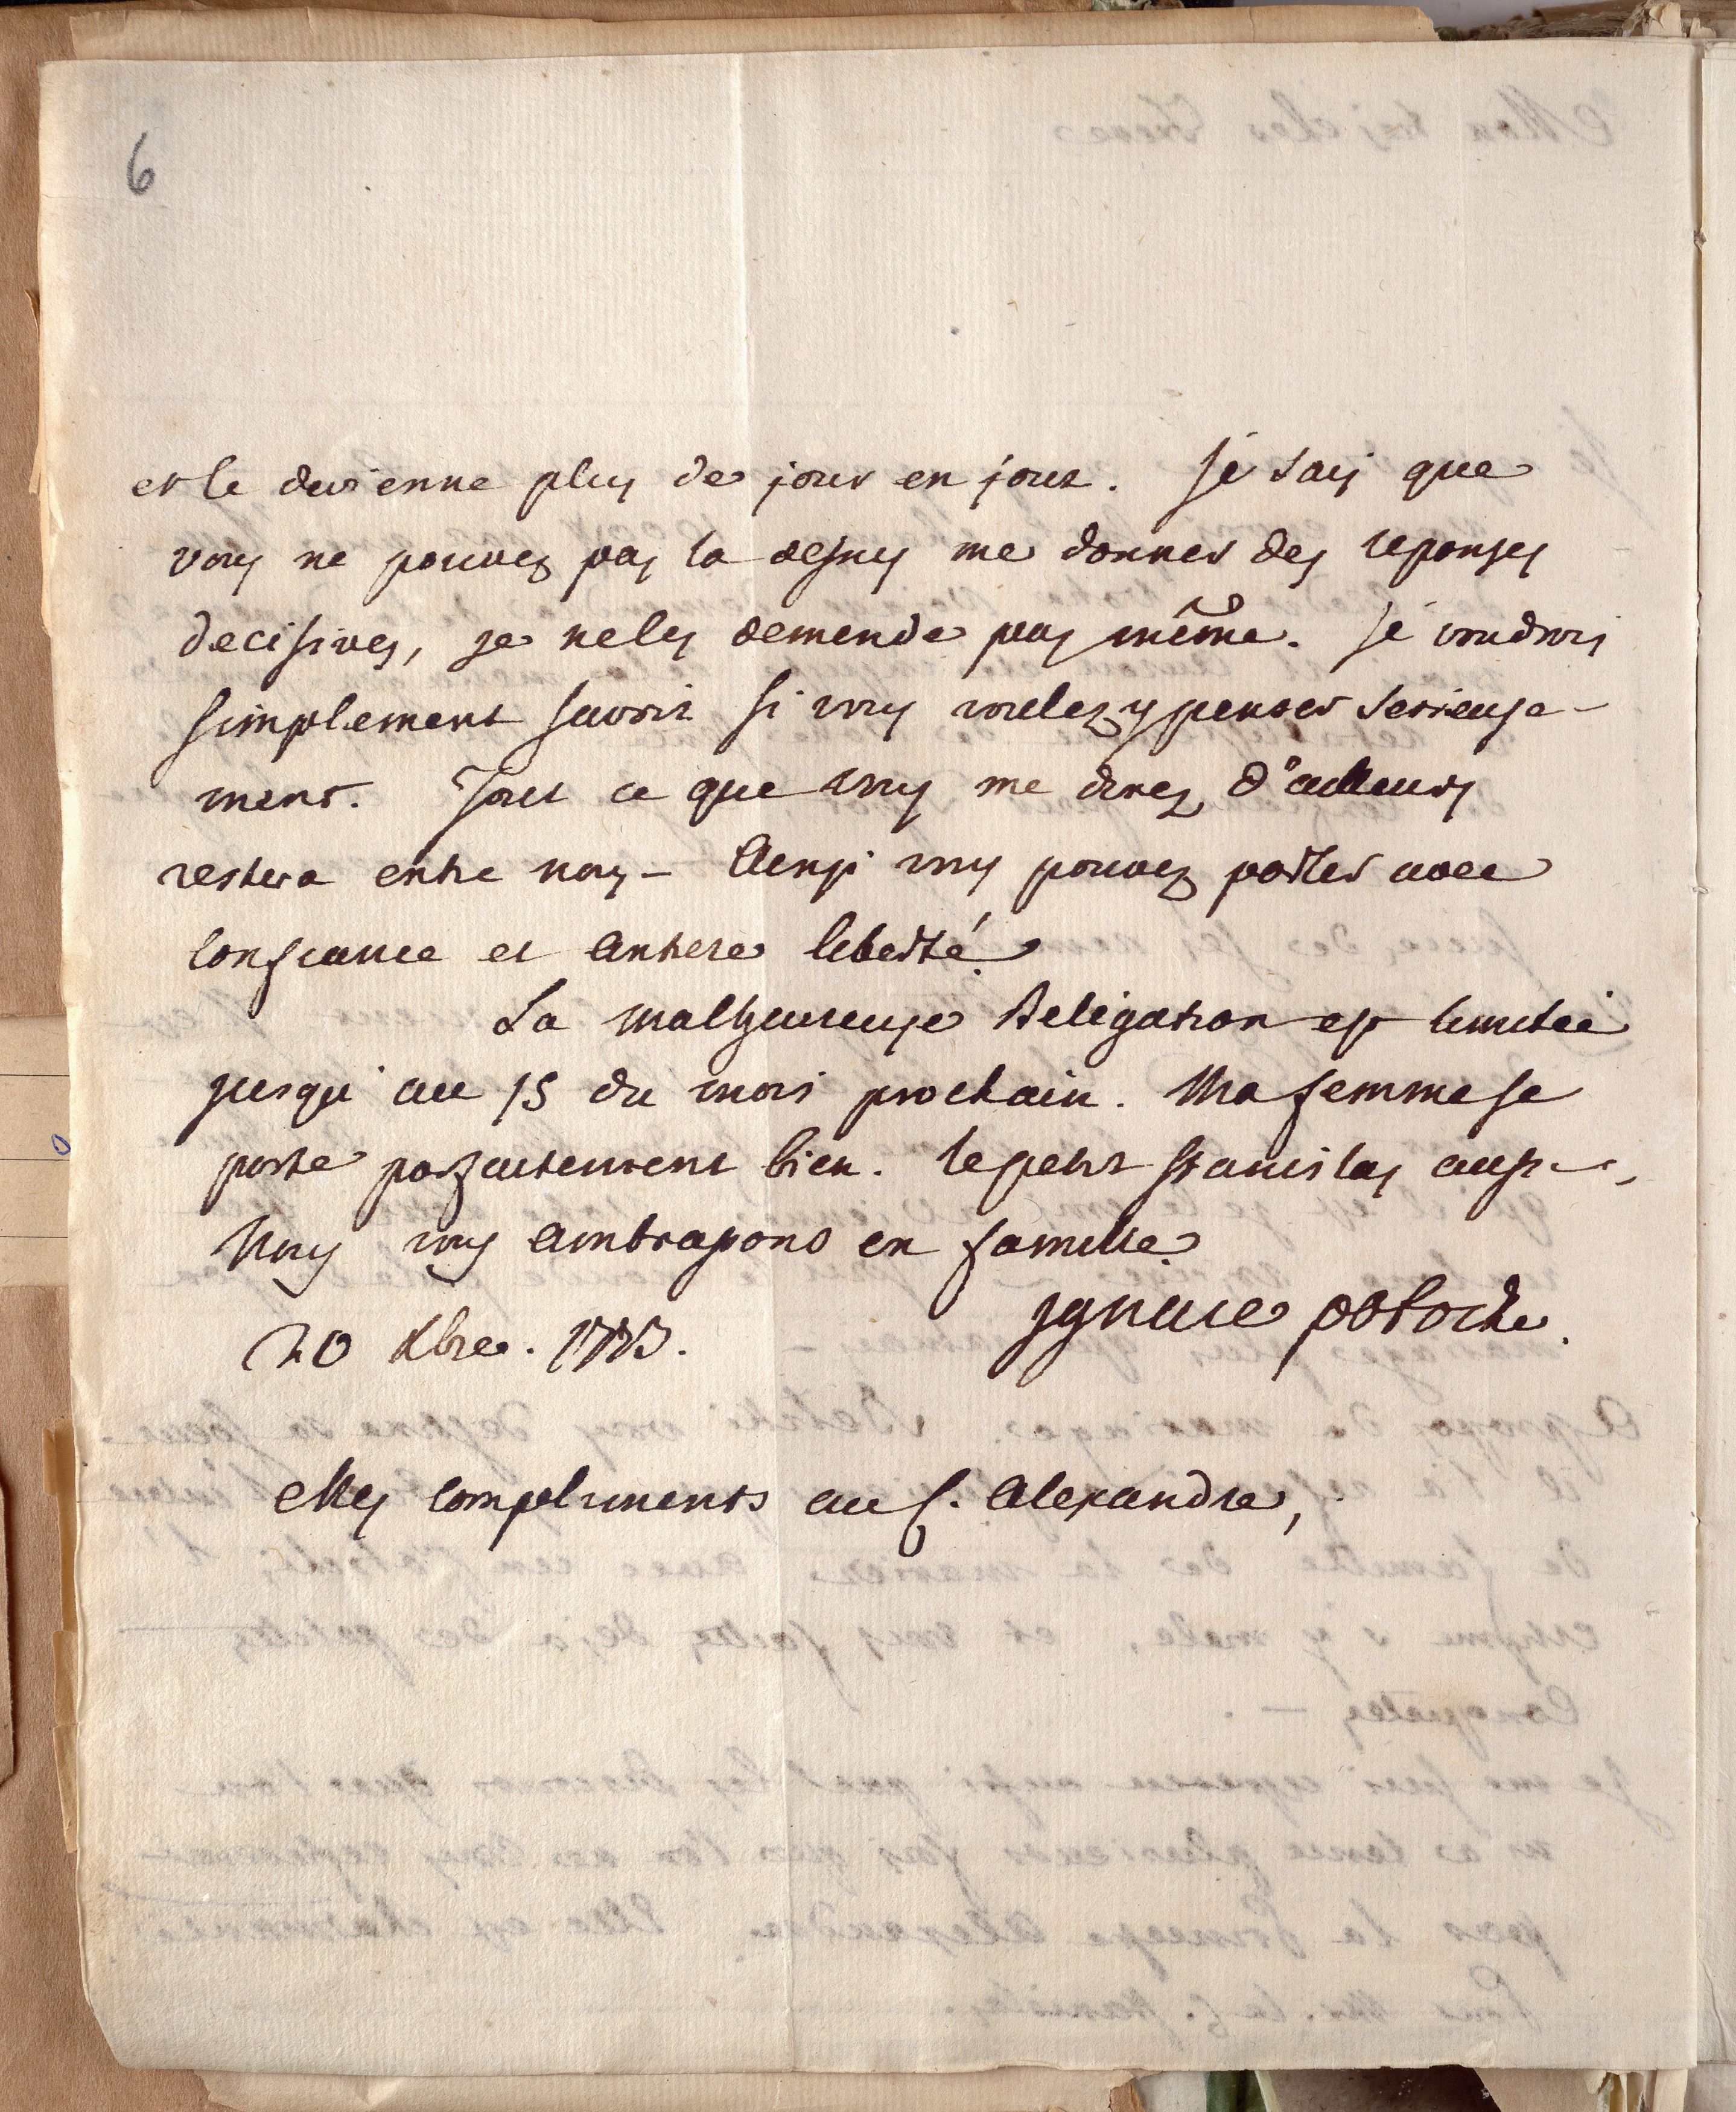 6
et le devienne plus de jour en jour. Je sais que
vous ne pouvez pas la desus me donner des reponses
decisives, je ne les demende pas même. Je voudrois
simplement savoir si vous voulez y penser serieuse-
ment. Tout ce que vous me direz d'ailleurs
restera entre nous – Ainsi vous pouvez parler avec
confiance et antiere liberté.
La malheureuse Delegation est limitée
jusqu'au 15 du mois prochain. Ma femme se
porte parfaitement bien. le petit Stanislas aussi,
Nous vous ambrassons en famille.
Ignace Potocki.
20 Xbre. 1773.
Mes compliments au C. Alexandre,